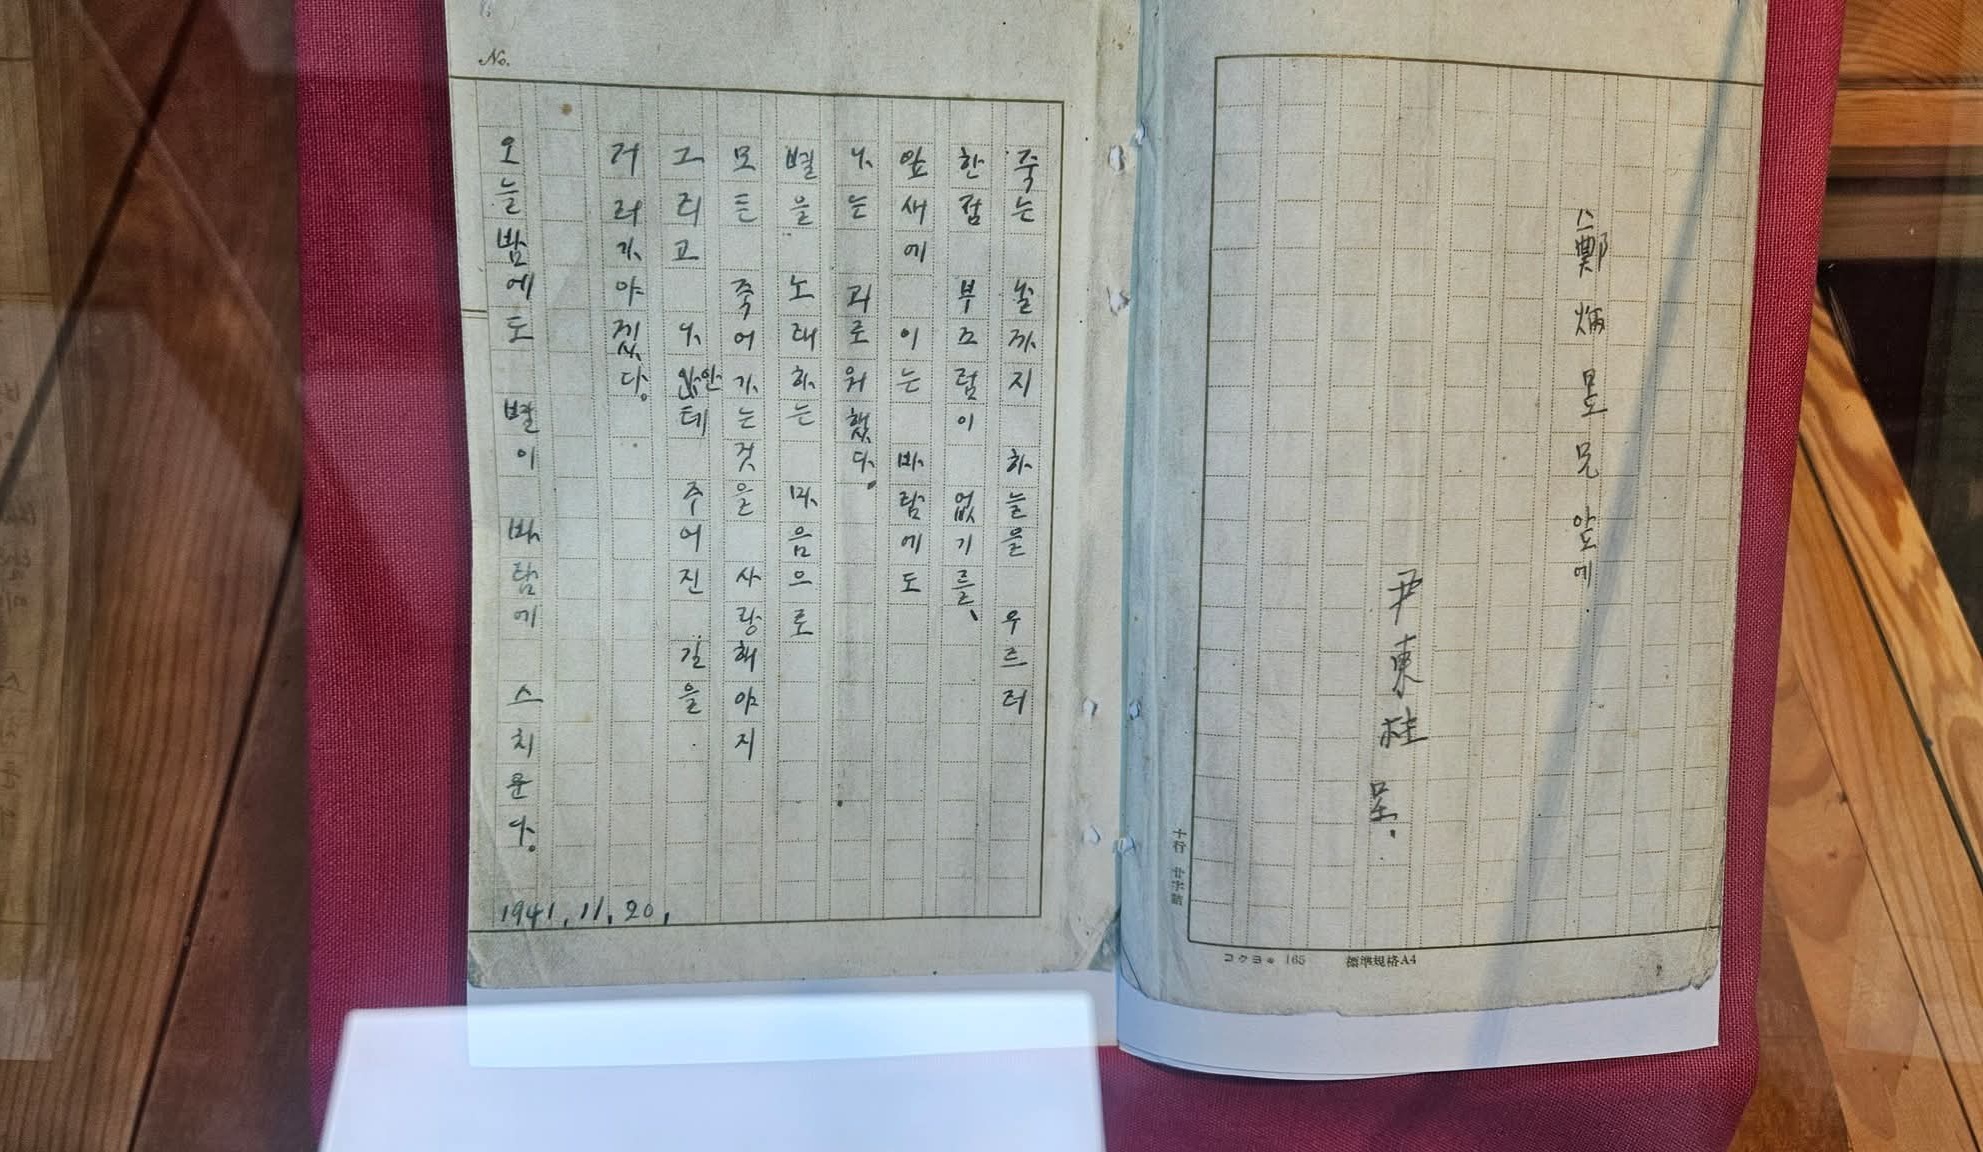 鄭炳昱兄 앞에
尹東柱 呈.
十行 廿字詰
コクヨ 165 標準規格A4
No.
죽는 날까지 하늘을 우르러
한점 부끄럼이 없기를、
잎새에 이는 바람에도
나는 괴로워했다.
별을 노래하는 마음으로
모든 죽어가는것을 사랑해야지
그리고 나안테 주어진 길을
거러가야겠다.
오늘밤에도 별이 바람에 스치운다.
1941.11.20.